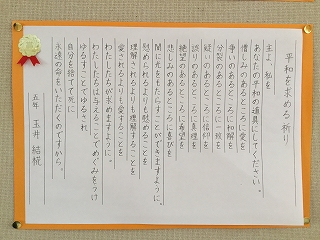 平和を求める祈り
主よ、私を
あなたの平和の道具にしてください。
憎しみのあるところに愛を
争いのあるところに和解を
分裂のあるところに一致を
疑いのあるところに信仰を
誤りのあるところに真理を
絶望のあるところに希望を
悲しみのあるところに喜びを
闇に光をもたらすことができますように。
慰められるよりも慰めることを
理解されるよりも理解することを
愛されるよりも愛することを
わたしたちが求めますように。
わたしたちは与えることでめぐみをうけ
ゆるすことでゆるされ
自分を捨てて死に
永遠の命をいただくのですから。
五年 玉井 結